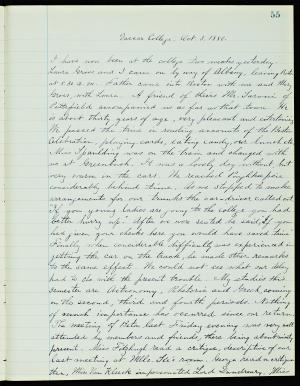 55
Vassar College. Oct. 3, 1880.
I have now been at the college two weeks yesterday.
Laura Gross and I came on by way of Albany, leaving Boston
at 8.30 a.m. Father came into Boston with me and Mary
Gross, with Laura. A friend of theirs Mr. of
Pittsfield accompanied us as far as that town. He
is about thirty years of age, very pleasant and entertaining.
We passed the time in reading accounts of the Boston
Celebration, playing cards, eating candy, our lunch etc.
Miss Spaulding was on the train and changed with
us at Greenbush. It was a lovely day without, but
very warm in the cars. We reached Poughkeepsie
considerably behind time. As we stopped to make
arrangements for our trunks the car-driver called out
If you young ladies are going to the college you had
better hurry up. After we were seated he said, If you
had given your checks here you would have saved time.
Finally when considerable difficulty was experienced in
getting the car on the track, he made other remarks
to the same effect. We could not see what our delay
had to do with the present trouble. My studies this
semester are Astronomy, Rhetoric and Greek, coming
in the second, third and fourth periods. Nothing
of much importance has occurred since our return.
The meeting of Beta last Friday evening was very well
attended by members and friends, there being about ninety
present. Miss Fitzhugh read a critique, descriptive of our
last meeting at Wells. room. read an critique
then, Miss Van Kleeck impersonated Lord Dundreary, Miss